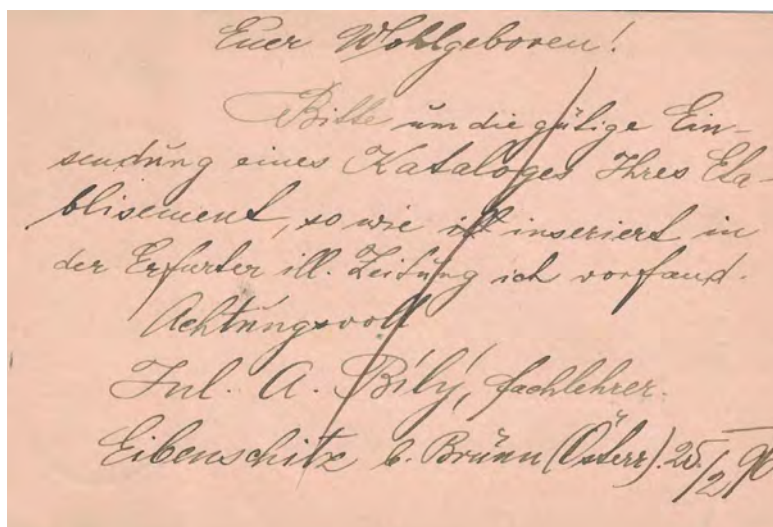 Euer Wohlgeboren!
Bitte um die gütige Ein-
sendung eines Kataloges Ihres Eta-
blisement, so wie inseriert in
der Erfurter ill. Zeitung ich vorfand.
Achtungsvoll
Jul. A. Bílý, Fachlehrer.
Eibenschitz b. Brünn (Österr). 25/2 90